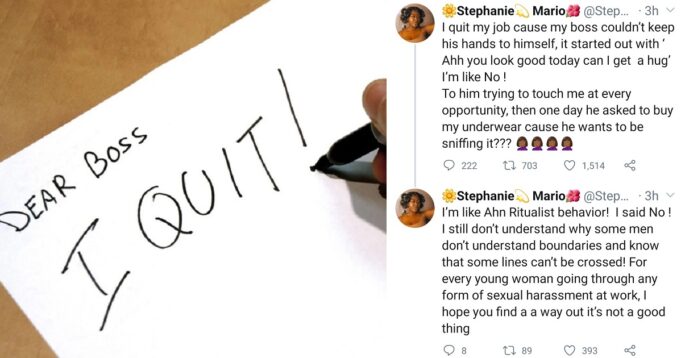 DEAR BOSS
I QUIT!
🌼Stephanie💫 Mario🌺 @Step... · 3h
I quit my job cause my boss couldn't keep
his hands to himself, it started out with ‘
Ahh you look good today can I get  a hug’
I'm like No !
To him trying to touch me at every
opportunity, then one day he asked to buy
my underwear cause he wants to be
sniffing it??? 🤦🏾‍♀️🤦🏾‍♀️🤦🏾‍♀️🤦🏾‍♀️
222 703 1,514
🌼Stephanie💫 Mario🌺 @Step... · 3h
I'm like Ahn Ritualist behavior!  I said No !
I still don't understand why some men
don't understand boundaries and know
that some lines can't be crossed! For
every young woman going through any
form of sexual harassment at work, I
hope you find a a way out it's not a good
thing
8 89 393